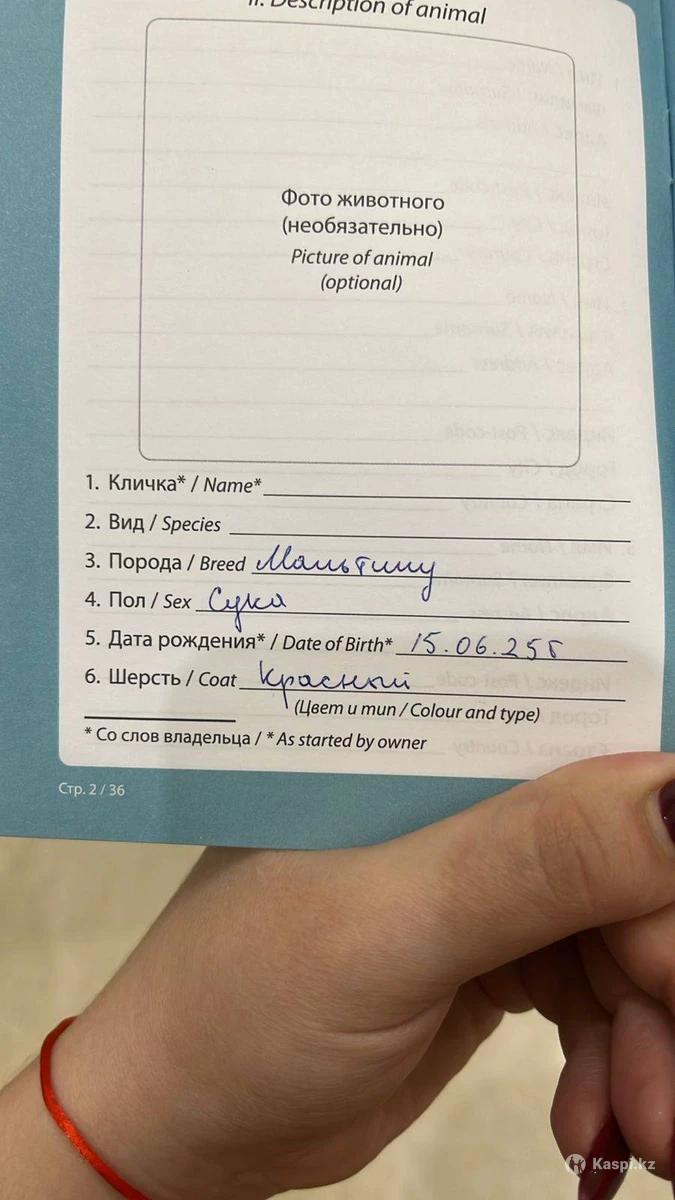 II. Description of animal
Фото животного
(необязательно)
Picture of animal
(optional)
1. Кличка* / Name*
2. Вид / Species
3. Порода / Breed Мальтипу
4. Пол / Sex Сука
5. Дата рождения* / Date of Birth* 15.06.25г
6. Шерсть / Coat Красный
(Цвет и тип / Colour and type)
* Со слов владельца / * As started by owner
Стр. 2 / 36
Kaspi.kz